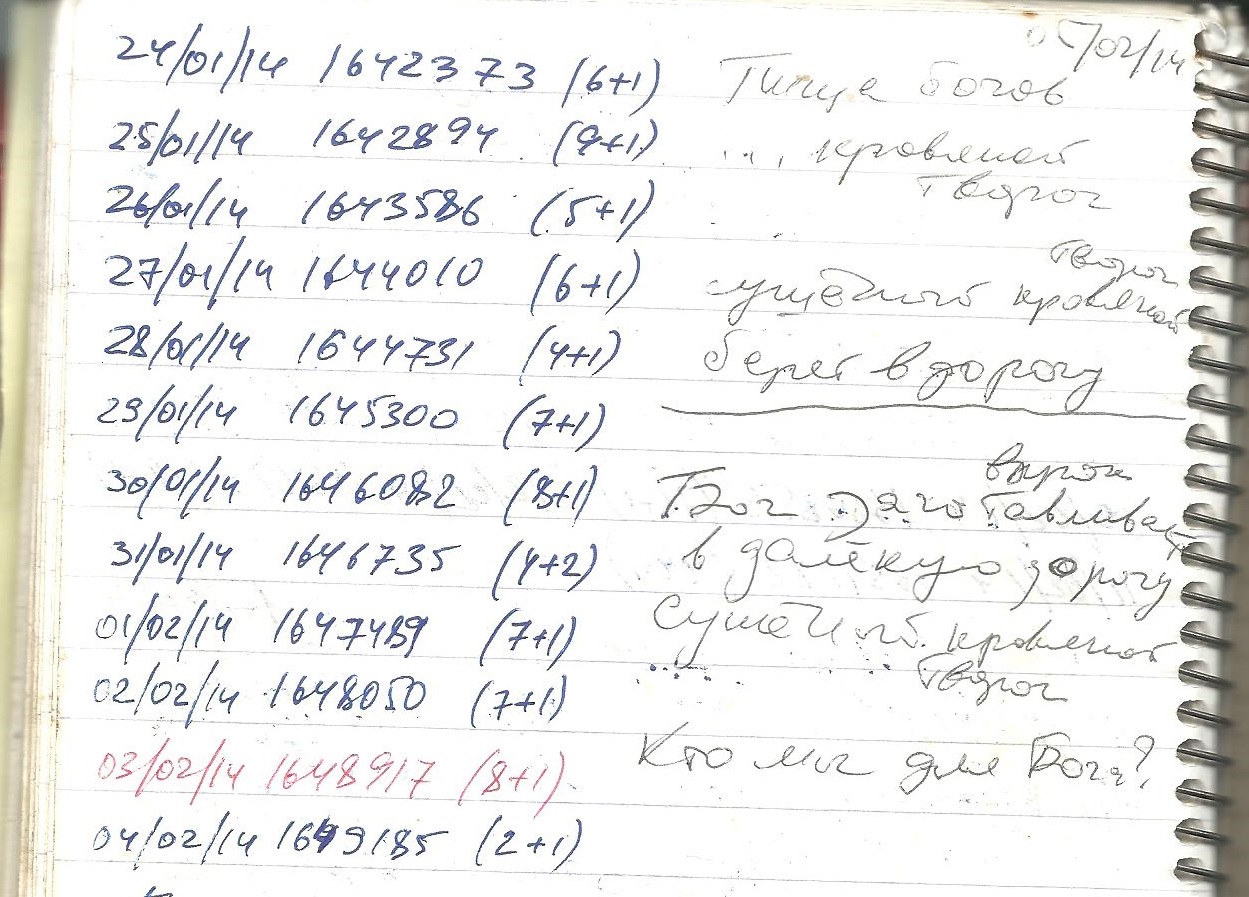 24/01/14 1642373 (6+1)
25/01/14 1642894 (9+1)
26/01/14 1643586 (5+1)
27/01/14 1644010 (6+1)
28/01/14 1644731 (4+1)
29/01/14 1645300 (7+1)
30/01/14 1646082 (8+1)
31/01/14 1646735 (4+2)
01/02/14 1647489 (7+1)
02/02/14 1648050 (7+1)
03/02/14 1648917 (8+1)
04/02/14 1649185 (2+1)
05/02/14
Пища богов
... кровяной
творог
творог
сушёный кровяной
берет в дорогу
впрок
Бог заготавливает
в далёкую дорогу
сушёный кровяной
творог
Кто мы для Бога?